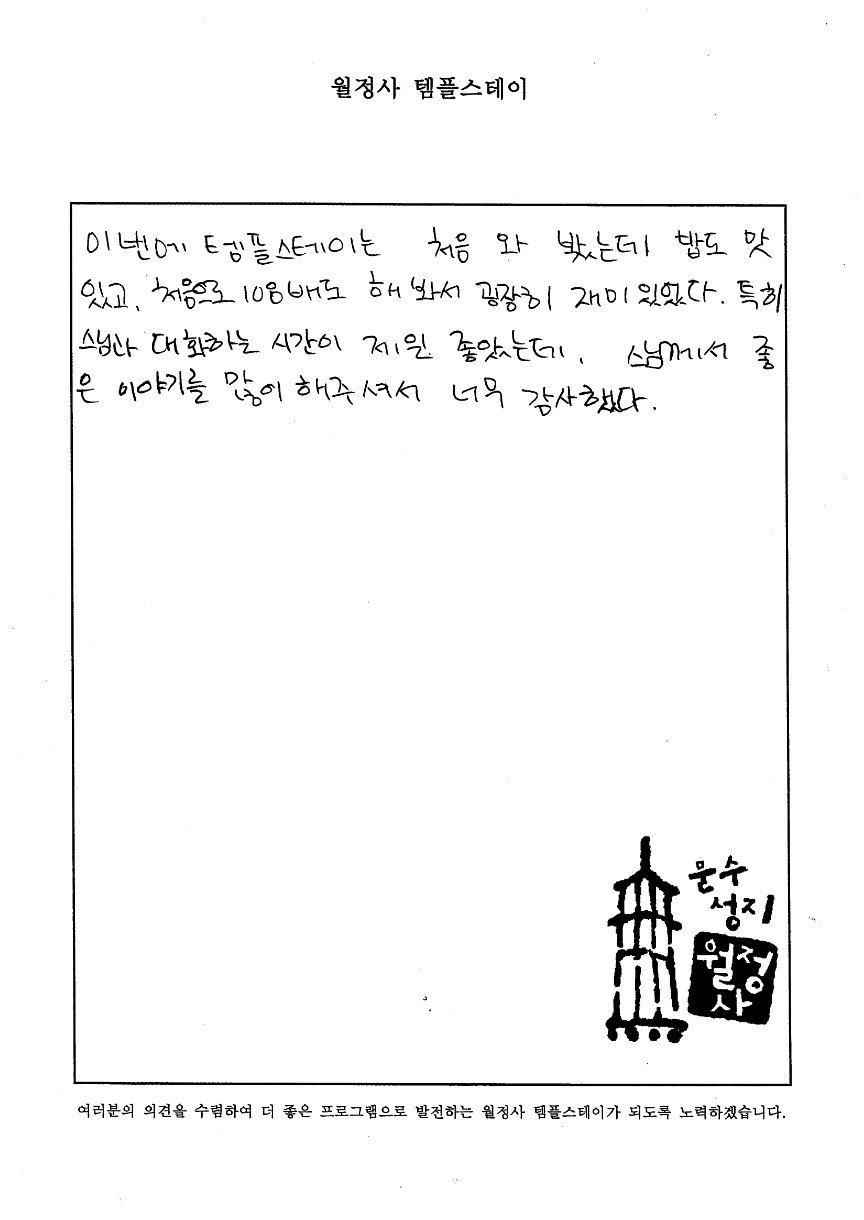 월정사 템플스테이
이번에 템플스테이는 처음 와 봤는데 밥도 맛
있고, 처음으로 108배도 해 봐서 굉장히 재미있었다. 특히
스님과 대화하는 시간이 제일 좋았는데, 스님께서 좋
은 이야기를 많이 해주셔서 너무 감사했다.
문수
성지
월정
사
여러분의 의견을 수렴하여 더 좋은 프로그램으로 발전하는 월정사 템플스테이가 되도록 노력하겠습니다.